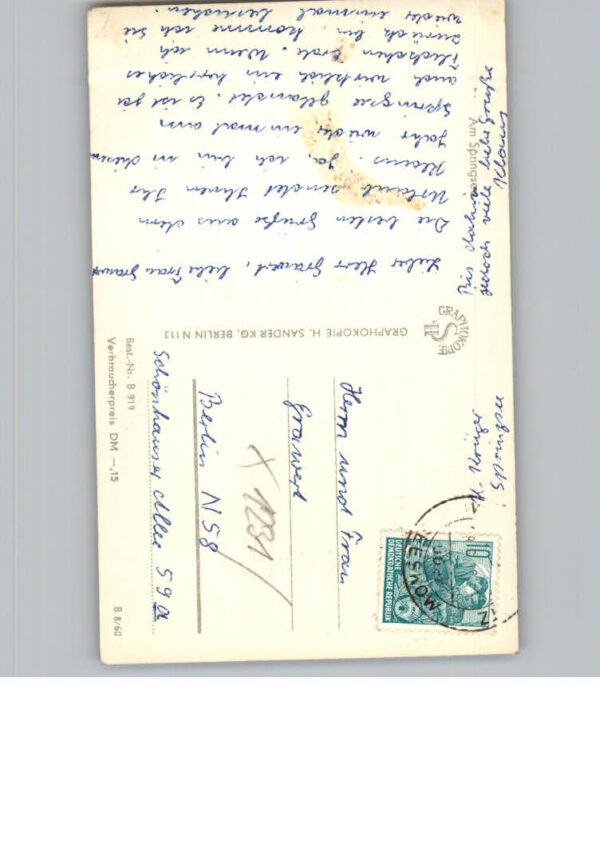 Am Springsee
Lieber Herr Grawert, liebe Frau Grawert
Die besten Grüße aus dem
Urlaub sendet Ihnen Ihr
Klaus. Ja, ich bin in diesem
Jahr wieder einmal am
Springsee gelandet. Es ist ja
auch wirklich ein herrliches
Fleckchen Erde. Wenn ich
zurück bin, komme ich Sie
wieder einmal besuchen.
Bis dahin
viele liebe Grüße
Klaus
K. Krüger
Springsee
GRAPHOKOPIE
HS
GRAPHOKOPIE H. SANDER KG, BERLIN N 113
10
DEUTSCHE
DEMOKRATISCHE REPUBLIK
Herrn und Frau
Grawert
X 1231
Berlin N 58
Schönhauser Allee 59a
Best.-Nr. B 919
Verbraucherpreis DM -,15
B 8/60